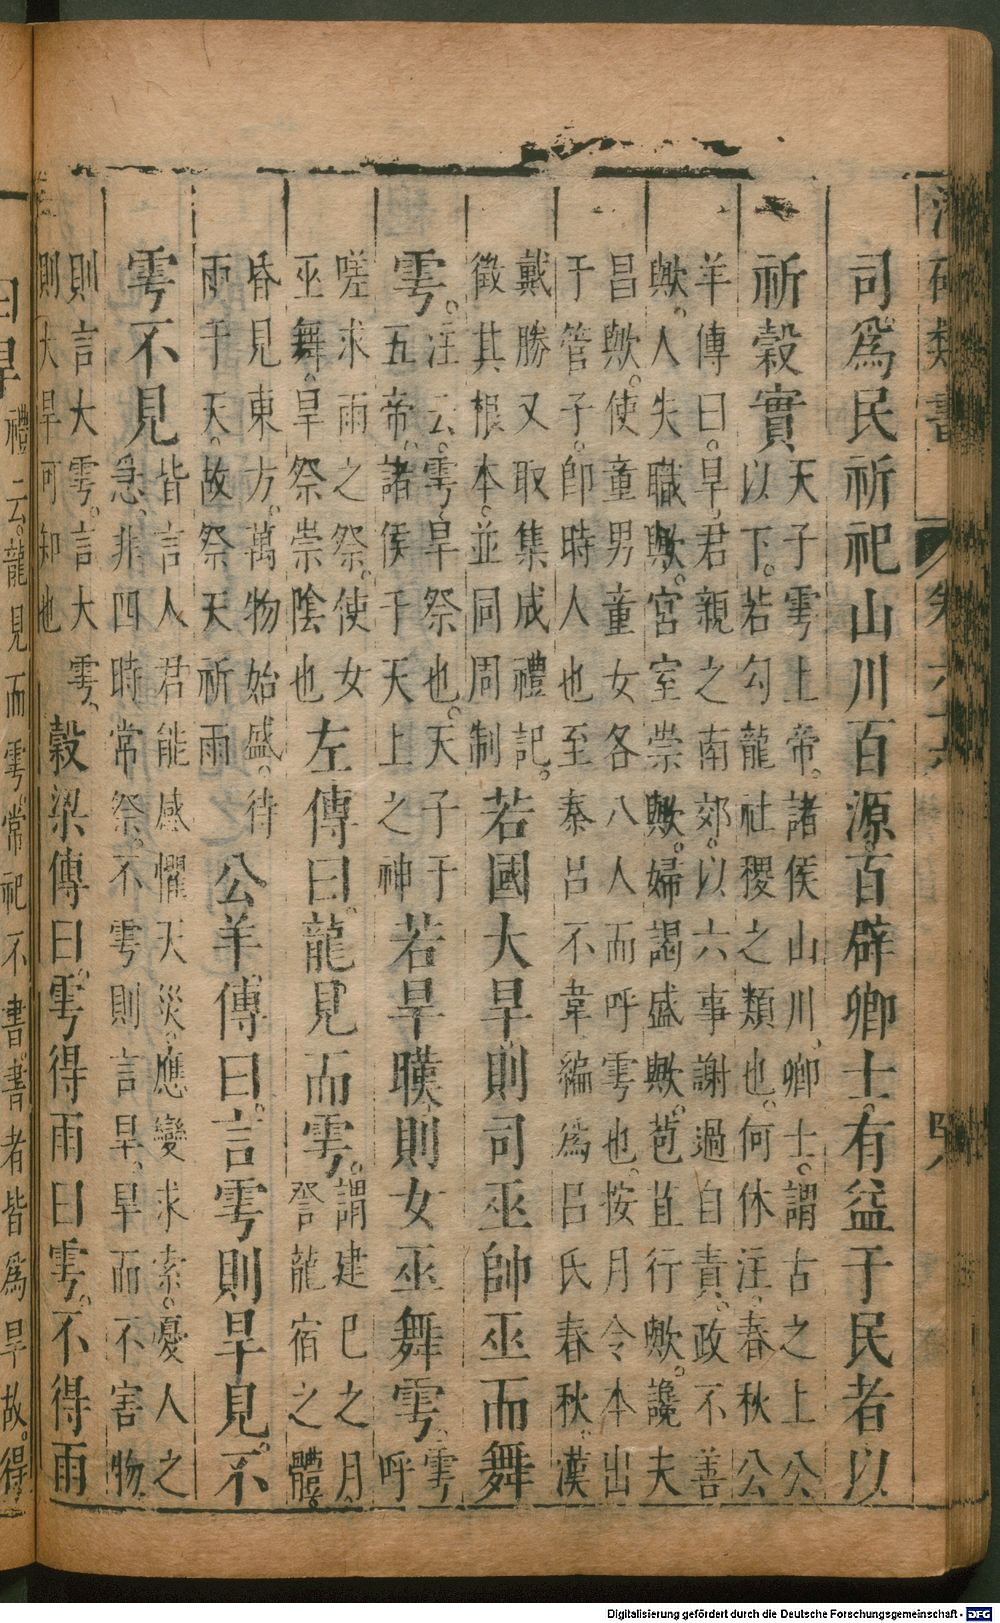 類書
司爲民祈祀山川百源百辟卿士有益于民者以
祈穀實
天子雩上帝。諸侯山川。卿士。謂古之上公
以下。若勾龍社稷之類也。何休注。春秋公
羊傳曰。旱。君親之南郊。以六事謝過自責。政不善
歟。人失職歟。宮室崇歟。婦謁盛歟。苞苴行歟。讒夫
昌歟。使童男童女各八人而呼雩也。按月令本出
于管子。卽時人也至秦呂不韋編爲呂氏春秋。漢
戴勝又取集成禮記。
徵其根本。並同周制
若國大旱則司巫帥巫而舞
雩。
注云。雩旱祭也。天子于
五帝。諸侯于天上之神
若旱暵則女巫舞雩。
雩呼
嗟求雨之祭。使女
巫舞。旱祭崇陰也
左傳曰。龍見而雩。
謂建巳之月。
登龍宿之體。
昏見東方。萬物始盛。待
雨于天。故祭天祈雨
公羊傳曰。言雩則旱見。不
雩不見
皆言人君能感懼天災。應變求索。憂人之
急。非四時常祭。不雩則言旱。旱而不害物。
則言大雩。言大雩。
則大旱可知也
穀梁傳曰。雩得雨曰雩。不得雨
曰旱
禮云。龍見而雩。常祀不書。書者皆爲旱故。得
Digitalisierung gefördert durch die Deutsche Forschungsgemeinschaft - DFG